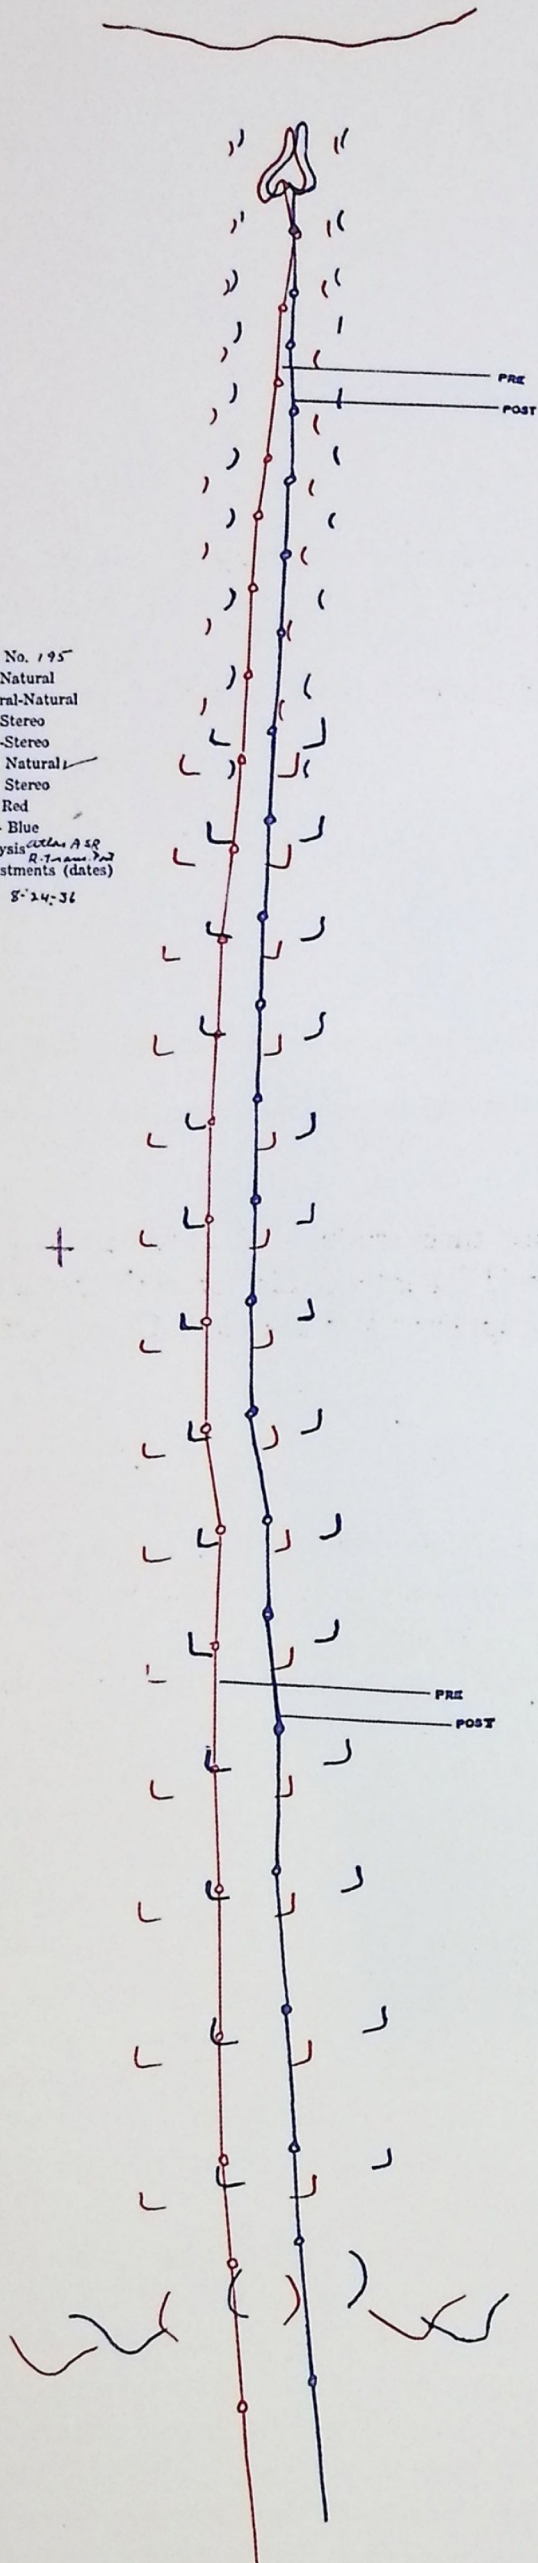 PRE
POST
No. 195
Natural
ral-Natural
Stereo
-Stereo
Natural
Stereo
Red
- Blue
ysis atlas ASR
stments (dates)
8-24-36
PRE
POST